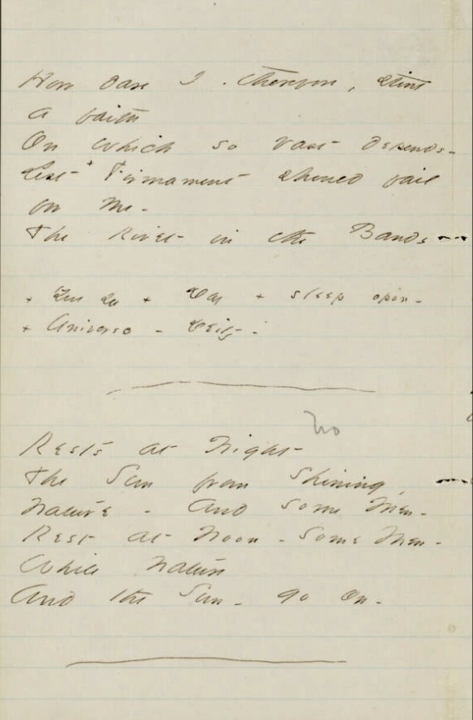 How dare I, therefore, stint
a faith
On which so vast depends -
Lest + Firmament should fail
for me -
The Rivet in the Bands
+ + + sleep opon -
+ Universe - Deity -
no
Rests at Night
The Sun from shining,
Nature - and some Men -
Rest at Noon - some Men -
While Nature
And the Sun - go on -